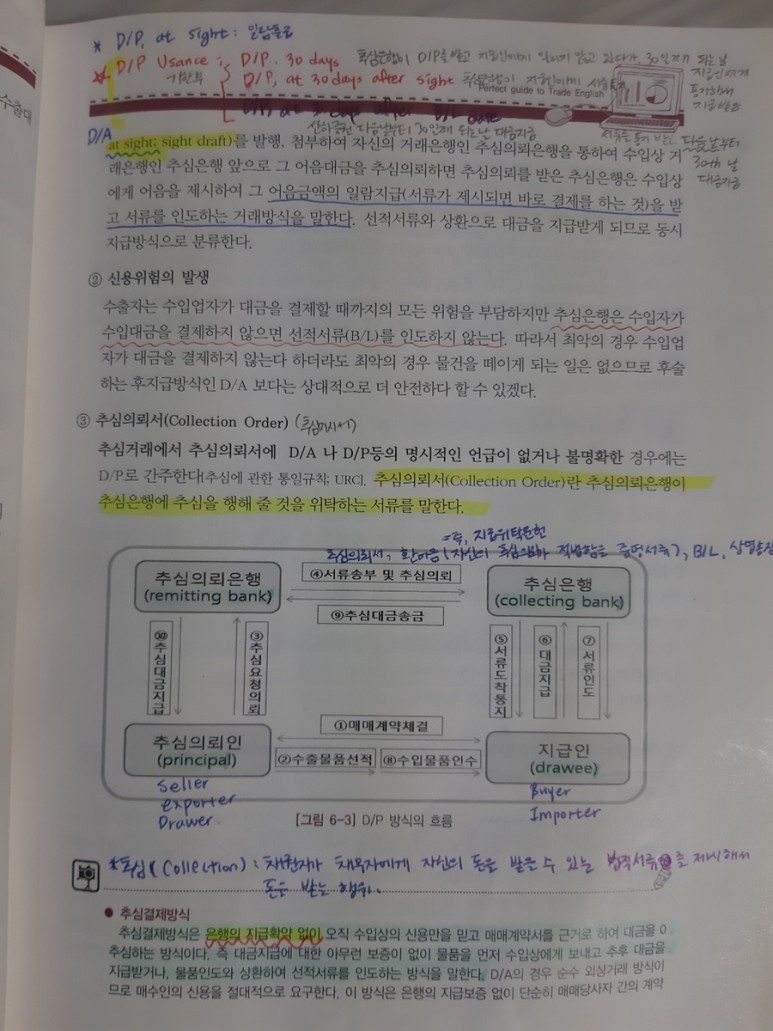 * D/P, at sight : 일람불로
* D/P Usance : D/P. 30 days 추심은행이 D/P를 받고 지급인에게 있다가, 30일째 되는 날
기한부 D/P, at 30 days after sight
지급인에게
Perfect guide to Trade English
D/A
다음날부터 30일째 되는 날 대금지급
다음날부터
30th 날
대금지급
at sight; sight draft)를 발행, 첨부하여 자신의 거래은행인 추심의뢰은행을 통하여 수입상 거
래은행인 추심은행 앞으로 그 어음대금을 추심의뢰하면 추심의뢰를 받은 추심은행은 수입상
에게 어음을 제시하여 그 어음금액의 일람지급(서류가 제시되면 바로 결제를 하는 것)을 받
고 서류를 인도하는 거래방식을 말한다. 선적서류와 상환으로 대금을 지급받게 되므로 동시
지급방식으로 분류한다.
② 신용위험의 발생
수출자는 수입업자가 대금을 결제할 때까지의 모든 위험을 부담하지만 추심은행은 수입자가
수입대금을 결제하지 않으면 선적서류(B/L)를 인도하지 않는다. 따라서 최악의 경우 수입업
자가 대금을 결제하지 않는다 하더라도 최악의 경우 물건을 떼이게 되는 일은 없으므로 후술
하는 후지급방식인 D/A 보다는 상대적으로 더 안전하다 할 수 있겠다.
③ 추심의뢰서(Collection Order) (추심지시서)
추심거래에서 추심의뢰서에 D/A 나 D/P등의 명시적인 언급이 없거나 불명확한 경우에는
D/P로 간주한다(추심에 관한 통일규칙; URC). 추심의뢰서(Collection Order)란 추심의뢰은행이
추심은행에 추심을 행해 줄 것을 위탁하는 서류를 말한다.
=즉, 지급위탁문헌
추심의뢰서, 환어음 (자신의 추심의뢰 적법함을 증명서류), B/L,
추심의뢰은행
(remitting bank)
④서류송부 및 추심의뢰
⑨추심대금송금
추심은행
(collecting bank)
⑩추심대금지급
③추심요청의뢰
⑤서류도착통지
⑥대금지급
⑦서류인도
①매매계약체결
②수출물품선적
⑧수입물품인수
추심의뢰인
(principal)
지급인
(drawee)
Seller
exporter
Drawer
Buyer
Importer
[그림 6-3] D/P 방식의 흐름
* 추심 (Collection) : 채권자가 채무자에게 자신의 돈을 받을 수 있는 법적서류를 제시해서
돈을 받는 행위.
● 추심결제방식
추심결제방식은 은행의 지급확약 없이 오직 수입상의 신용만을 믿고 매매계약서를 근거로 하여 대금을
추심하는 방식이다. 즉 대금지급에 대한 아무런 보증이 없이 물품을 먼저 수입상에게 보내고 추후 대금을
지급받거나, 물품인도와 상환하여 선적서류를 인도하는 방식을 말한다. D/A의 경우 순수 외상거래 방식이
므로 매수인의 신용을 절대적으로 요구한다. 이 방식은 은행의 지급보증 없이 단순히 매매당사자 간의 계약